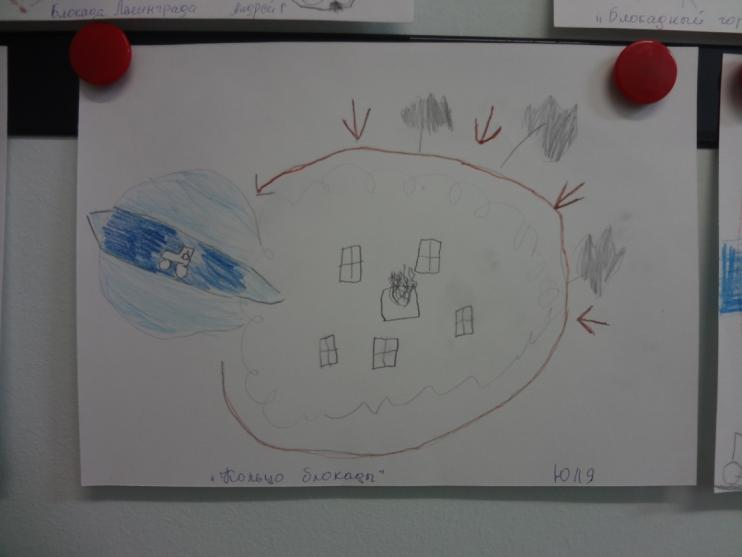 Блокада Ленинграда Андрей Г
"Блокадный гор
"Кольцо блокады" Юля